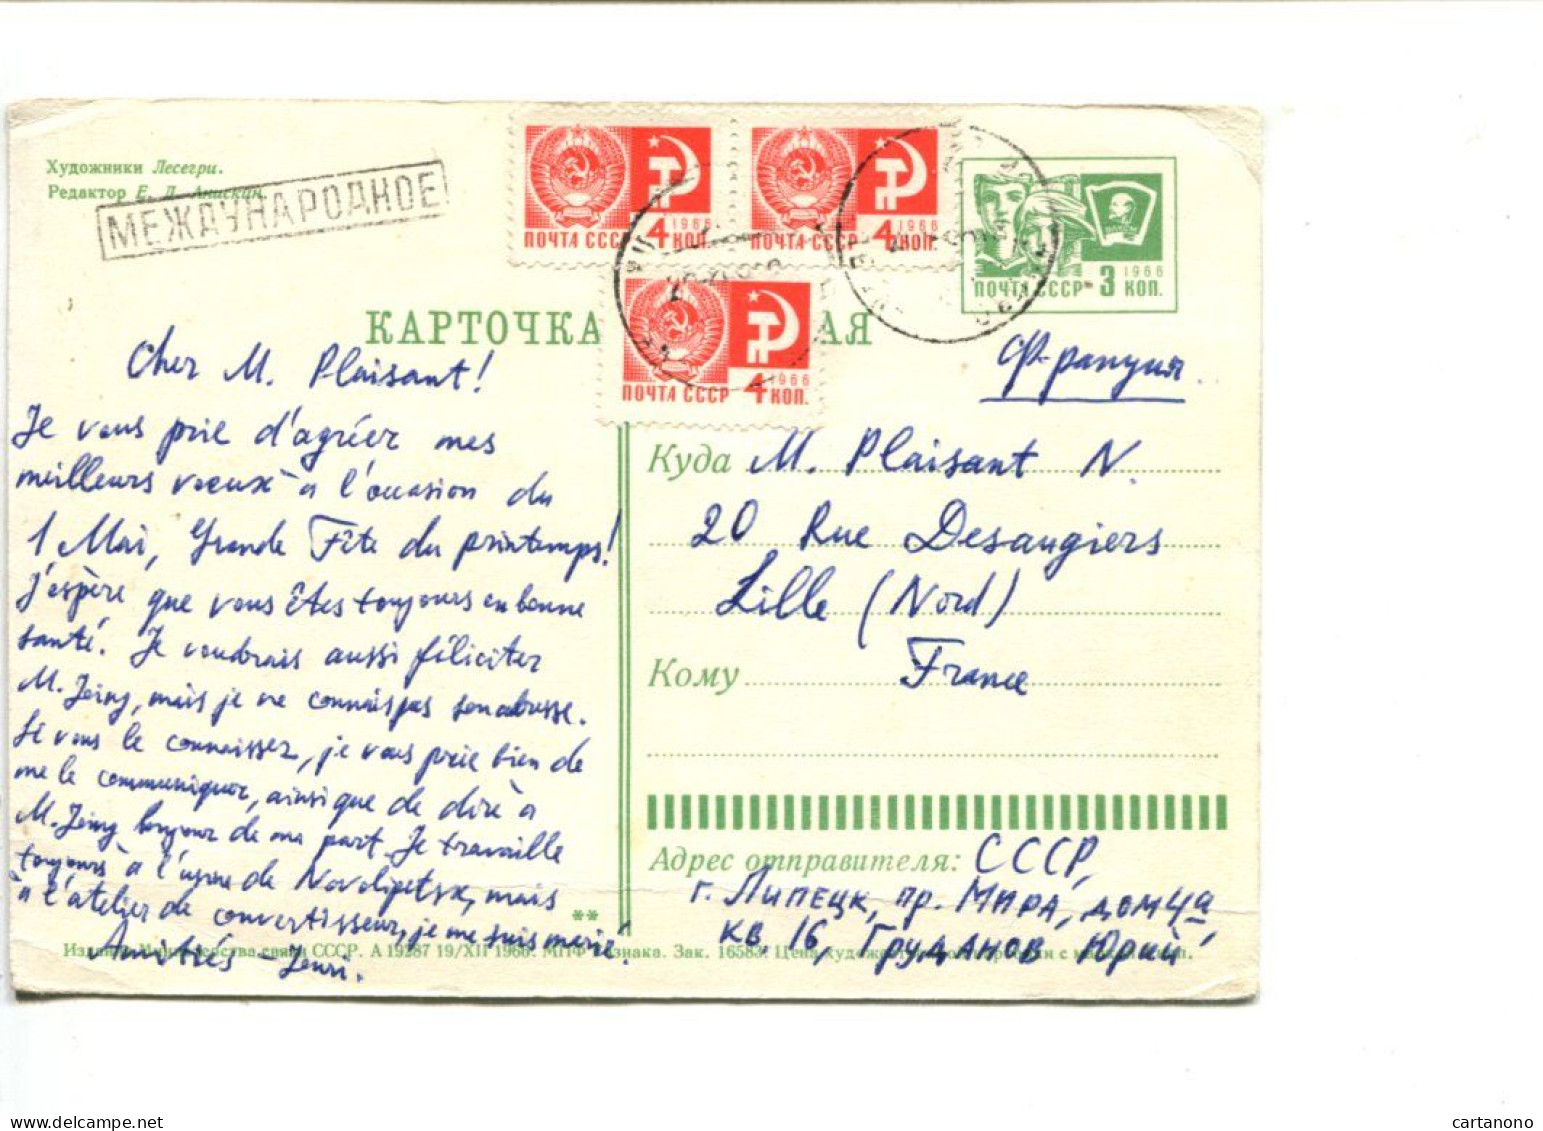 Художники Лесегри.
Редактор Е. Л. Анискин.
МЕЖДУНАРОДНОЕ
ПОЧТА СССР 4 КОП. 1966
ПОЧТА СССР 4 КОП. 1966
ПОЧТА СССР 4 КОП. 1966
ПОЧТА СССР 3 КОП. 1966
КАРТОЧКА АЯ
Cher M. Plaisant!
Je vous prie d'agréer mes
meilleurs voeux à l'occasion du
1 Mai, Grande Fête du printemps!
J'espère que vous êtes toujours en bonne
santé. Je voudrais aussi féliciter
M. Jeing, mais je ne connais pas son adresse.
Si vous le connaissez, je vous prie bien de
me le communiquer, ainsi que de dire à
M. Jeing bonjour de ma part. Je travaille
toujours à l'usine de Novolipetsk, mais
à l'atelier de convertisseur, je me suis marié.
Amitiés - Jouri.
Франция
Куда M. Plaisant N.
20 Rue Desaugiers
Lille (Nord)
Кому France
Адрес отправителя: СССР,
г. Липецк, пр. Мира, дом 4а,
кв. 16, Груданов Юрий
**
Министерства связи СССР. А 19287 19/XII 1966. МПФ Гознака. Зак. 16583. Цена
delcampe.net
cartanono